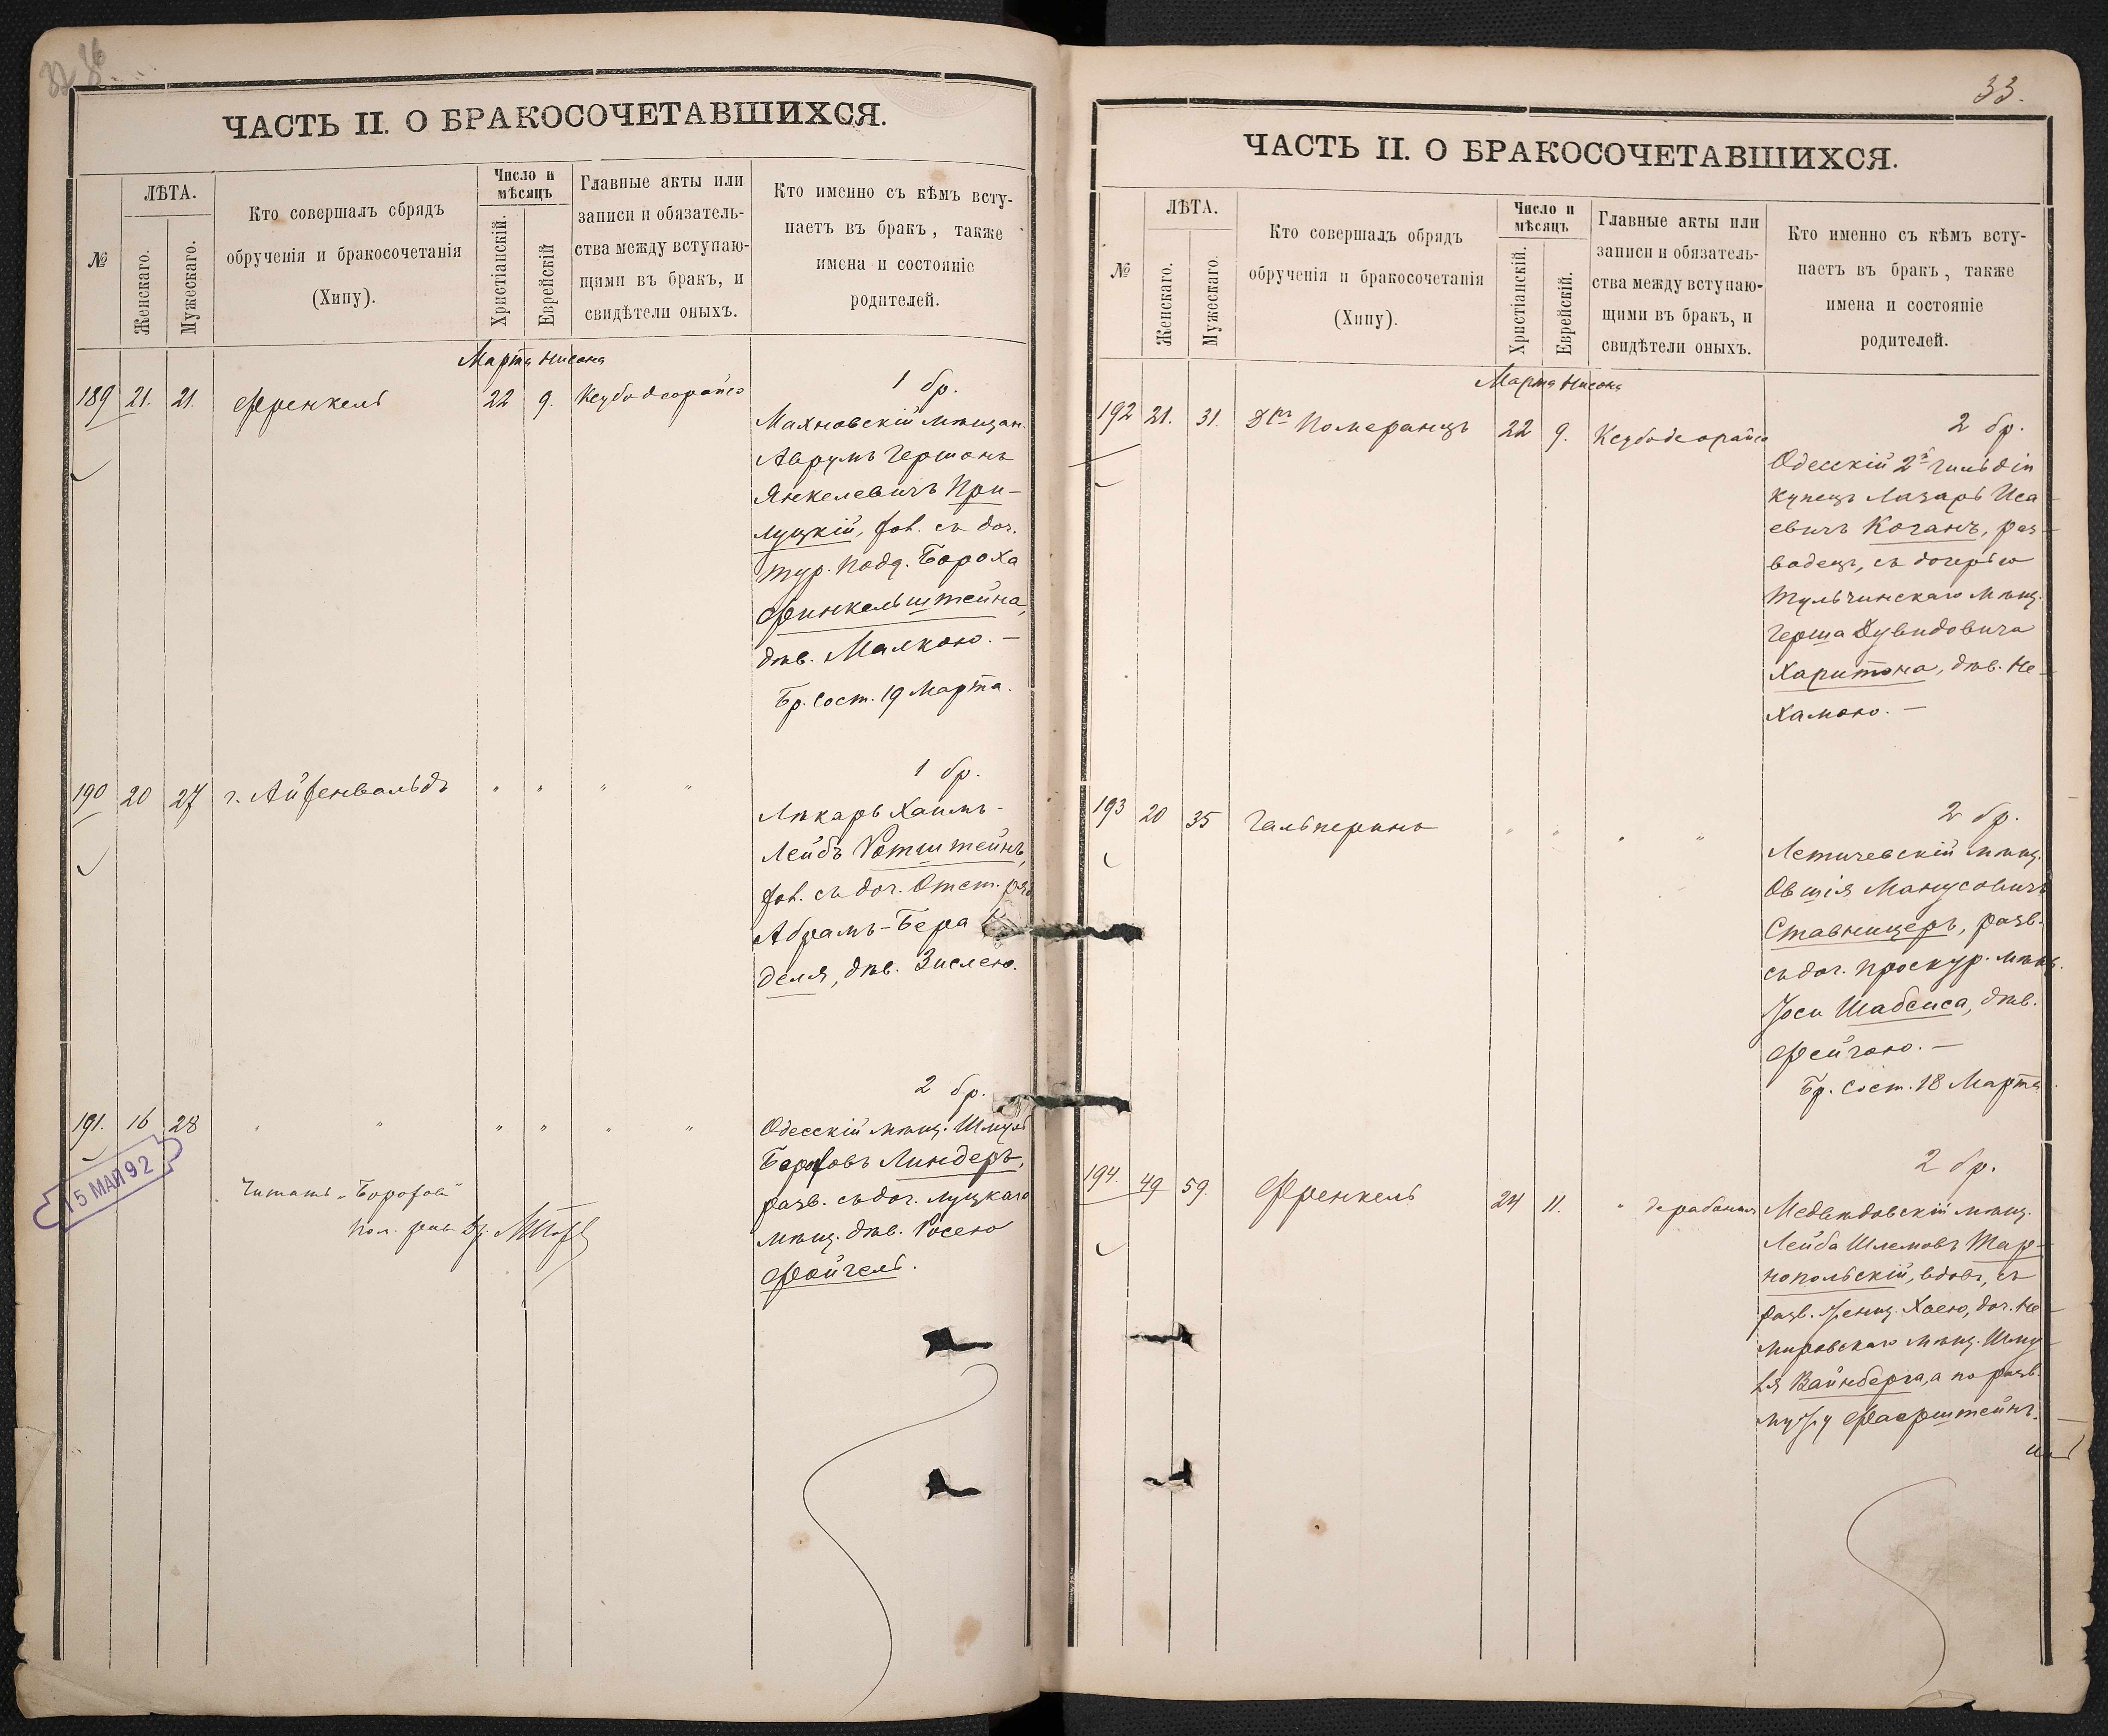 32
ЧАСТЬ II. О БРАКОСОЧЕТАВШИХСЯ.
№
ЛѢТА.
Женскаго.
Мужескаго.
Кто совершалъ обрядъ
обрученія и бракосочетанія
(Хипу).
Число и
мѣсяцъ
Христіанскій.
Еврейскій
Главные акты или
записи и обязатель-
ства между вступаю-
щими въ бракъ, и
свидѣтели оныхъ.
Кто именно съ кѣмъ всту-
паетъ въ бракъ, также
имена и состояніе
родителей.
Марта Нисона
189 21. 21. Френкель 22 9. Ксубо деорайсо
1 бр.
Махновскій мѣщан.
Аврумъ Гершонъ
Янкелевичъ При-
луцкій, хол. съ доч.
тур. подд. Бороха
Финкельштейна,
дѣв. Малкою. —
Бр. сост. 19 Марта.
190 20 27 г. Айзенвальдъ " " " "
1 бр.
Лѣкарь Хаимъ-
Лейбъ Ротштейнъ,
хол. съ доч. Отст. ряд.
Абрамъ-Бера
деля, дѣв. Зислею.
191. 16 28 " " " " " "
2 бр.
Одесскій мѣщ. Шмуль
Береловъ Линдеръ,
разв. съ доч. луцкаго
мѣщ. дѣв. Росею
Фойгель.
15 МАЯ 92
Читать „
Пол. рав.
33.
ЧАСТЬ II. О БРАКОСОЧЕТАВШИХСЯ.
№
ЛѢТА.
Женскаго.
Мужескаго.
Кто совершалъ обрядъ
обрученія и бракосочетанія
(Хипу).
Число и
мѣсяцъ
Христіанскій.
Еврейскій.
Главные акты или
записи и обязатель-
ства между вступаю-
щими въ бракъ, и
свидѣтели оныхъ.
Кто именно съ кѣмъ всту-
паетъ въ бракъ, также
имена и состояніе
родителей.
Марта Нисона
192 21. 31. Д-ръ Померанцъ 22 9. Ксубо деорайсо
2 бр.
Одесскій 2й гильдіи
купецъ Лазарь Иса-
евичъ Коганъ, раз-
водецъ, съ дочерью
Тульчинскаго мѣщ.
Герша Дувидовича
Харитона, дѣв. Не-
хамою. —
193 20 35 Гальперинъ " " " "
2 бр.
Летичевскій мѣщ.
Овшія Манусовичъ
Ставницеръ, разв.
съ доч. проскур. мѣщ.
Іоси Шабсиса, дѣв.
Фейгою. —
Бр. сост. 18 Марта.
194. 49 59. Френкель 24 11. " дерабонын
2 бр.
Медвѣдовскій мѣщ.
Лейба Шлемовъ Тар-
нопольскій, вдов., съ
разв. женщ. Хаею, доч. Не-
мировскаго мѣщ. Шму-
ля Вайнберга, а по разв.
мужу Фаерштейнъ.